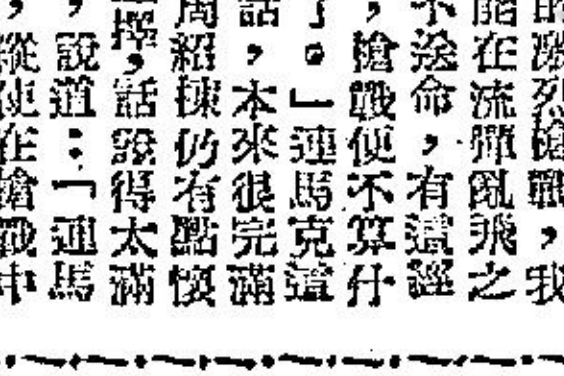 的激烈槍戰，我
能在流彈亂飛之
不送命，有這經
，槍戰便不算什
了。」連馬克這
話，本來很完滿
周紹棟仍有點懷
擇，話說得太滿
，說道：「連馬
，縱使在槍戰中